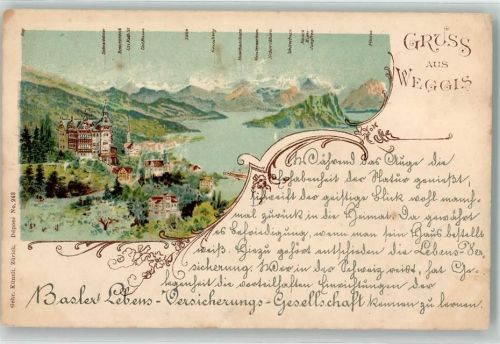 GRUSS
AUS
WEGGIS
Während das Auge die
Erhabenheit der Natur genießt,
schweift der geistige Blick wohl manch-
mal zurück in die Heimat. Da gewährt
es befriedigung, wenn man sein Haus bestellt
weiß. Hiezu gehört entschieden die Lebens-Ver-
sicherung. Wer in der Schweiz weilt, hat Ge-
legenheit die vorteilhaften Einrichtungen der
Basler Lebens-Versicherungs-Gesellschaft kennen zu lernen.
Gebr. Künzli, Zürich. Dépose No. 243